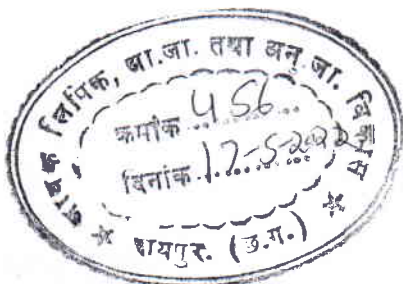 आवक लिपिक, आ.जा. तथा अनु.जा. विकास
क्रमांक 456
दिनांक 17-5-2022
रायपुर. (छ.ग.)